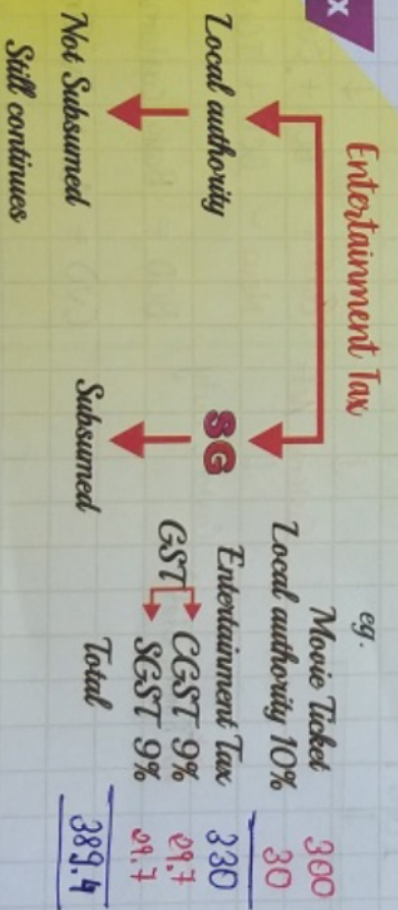 x
Entertainment Tax
Local authority
SG
Not Subsumed
Subsumed
Still continues
eg.
Movie Ticket 300
Local authority 10% 30
Entertainment Tax 330
GST CGST 9% 29.7
SGST 9% 29.7
Total 389.4